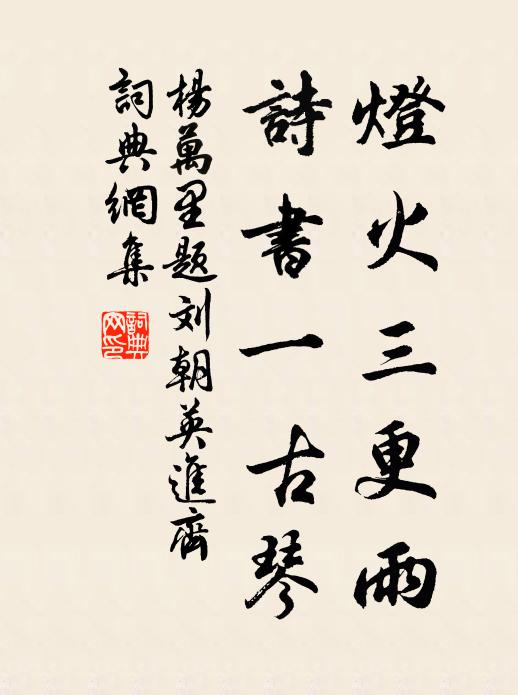 燈火三更雨
詩書一古琴
楊萬里題刘朝英進齋
詞典網集
詞典網印